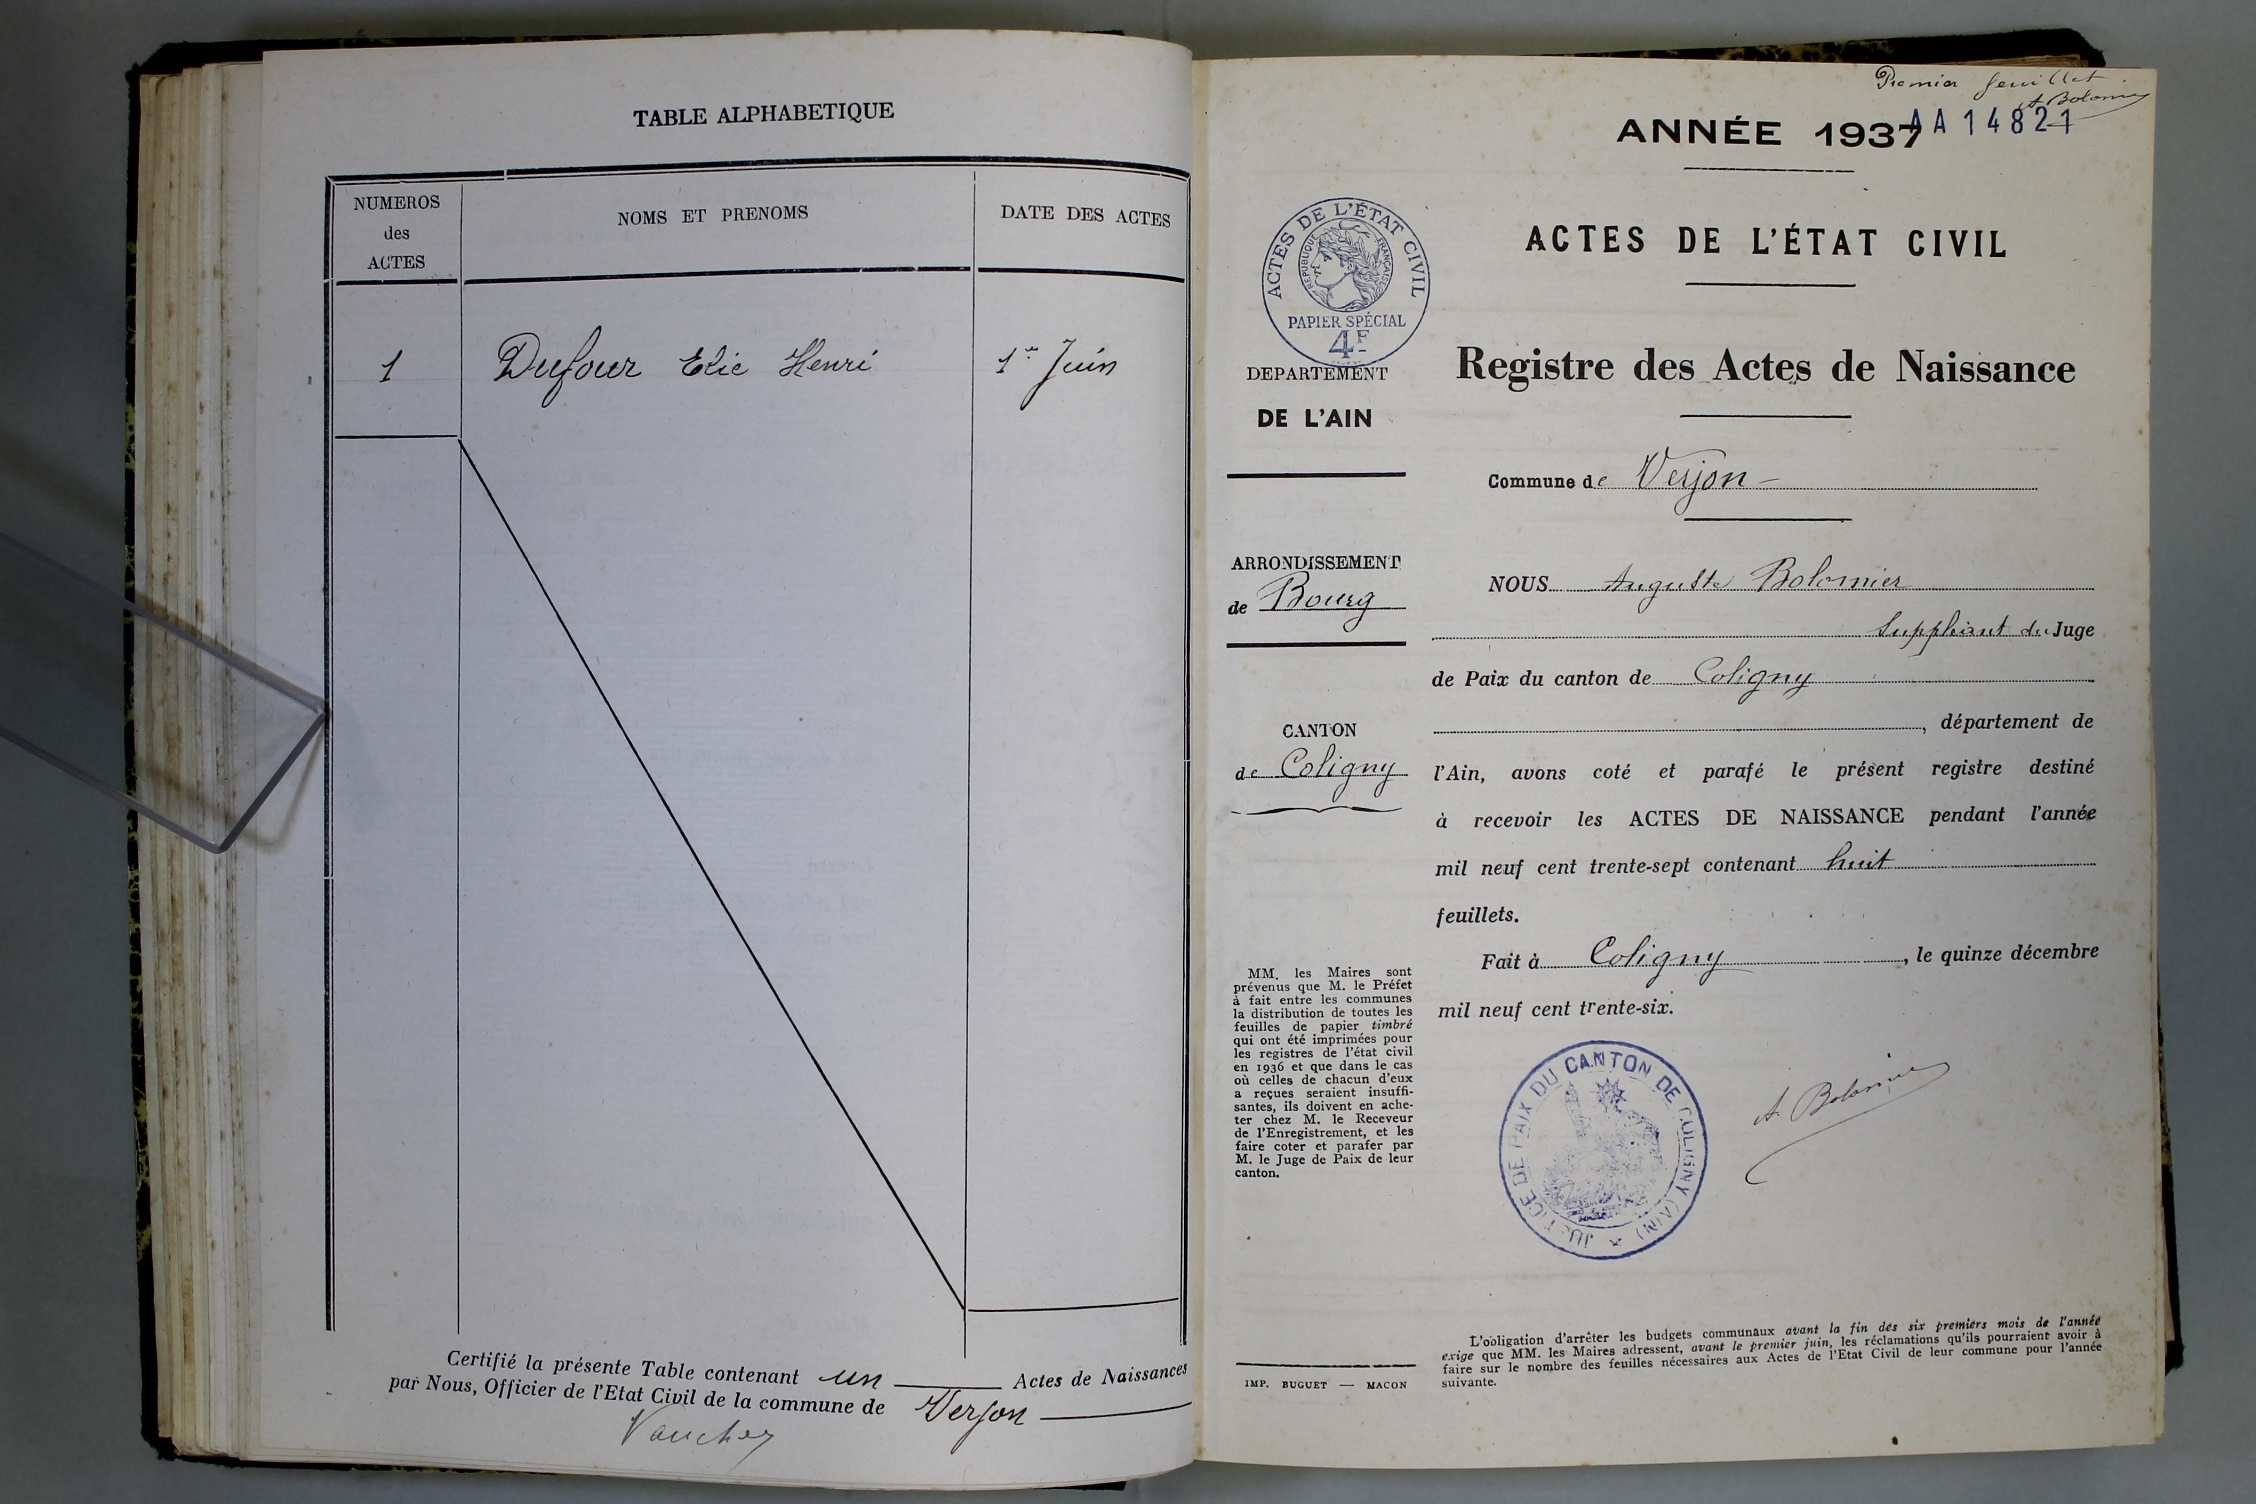 TABLE ALPHABETIQUE
NUMEROS
des
ACTES
NOMS ET PRENOMS
DATE DES ACTES
1
Dufour Elie Henri
1er Juin
Certifié la présente Table contenant un Actes de Naissances
par Nous, Officier de l'Etat Civil de la commune de Verjon
Vaucher
Premier feuillet
A. Bolomier
AA 14821
ANNÉE 1937
ACTES DE L'ÉTAT CIVIL
ACTES DE L'ÉTAT CIVIL
REPUBLIQUE FRANÇAISE
PAPIER SPÉCIAL
4F
Registre des Actes de Naissance
DEPARTEMENT
DE L'AIN
Commune de Verjon
ARRONDISSEMENT
de Bourg
CANTON
de Coligny
NOUS Auguste Bolomier
Suppléant du Juge
de Paix du canton de Coligny
, département de
l'Ain, avons coté et parafé le présent registre destiné
à recevoir les ACTES DE NAISSANCE pendant l'année
mil neuf cent trente-sept contenant huit
feuillets.
Fait à Coligny, le quinze décembre
mil neuf cent trente-six.
MM. les Maires sont
prévenus que M. le Préfet
à fait entre les communes
la distribution de toutes les
feuilles de papier timbré
qui ont été imprimées pour
les registres de l'état civil
en 1936 et que dans le cas
où celles de chacun d'eux
a reçues seraient insuffi-
santes, ils doivent en ache-
ter chez M. le Receveur
de l'Enregistrement, et les
faire coter et parafer par
M. le Juge de Paix de leur
canton.
JUSTICE DE PAIX DU CANTON DE COLIGNY (AIN)
A. Bolomier
L'obligation d'arrêter les budgets communaux avant la fin des six premiers mois de l'année
exige que MM. les Maires adressent, avant le premier juin, les réclamations qu'ils pourraient avoir à
faire sur le nombre des feuilles nécessaires aux Actes de l'Etat Civil de leur commune pour l'année
suivante.
IMP. BUGUET — MACON